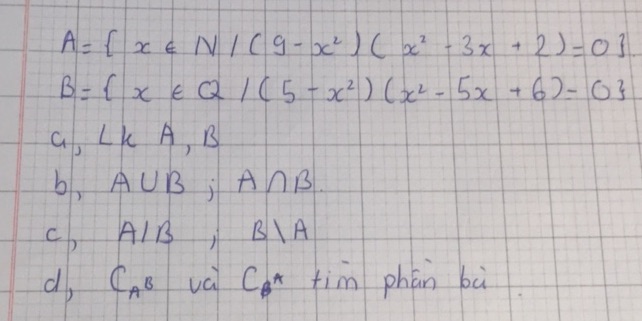 A = { x ∈ N / ( 9 - x² ) ( x² - 3x + 2 ) = 0 }
B = { x ∈ Q / ( 5 - x² ) ( x² - 5x + 6 ) = 0 }
a, Lk A, B
b, A ∪ B ; A ∩ B.
c, A / B , B \ A
d, C_A B và C_B A tìm phần bù.